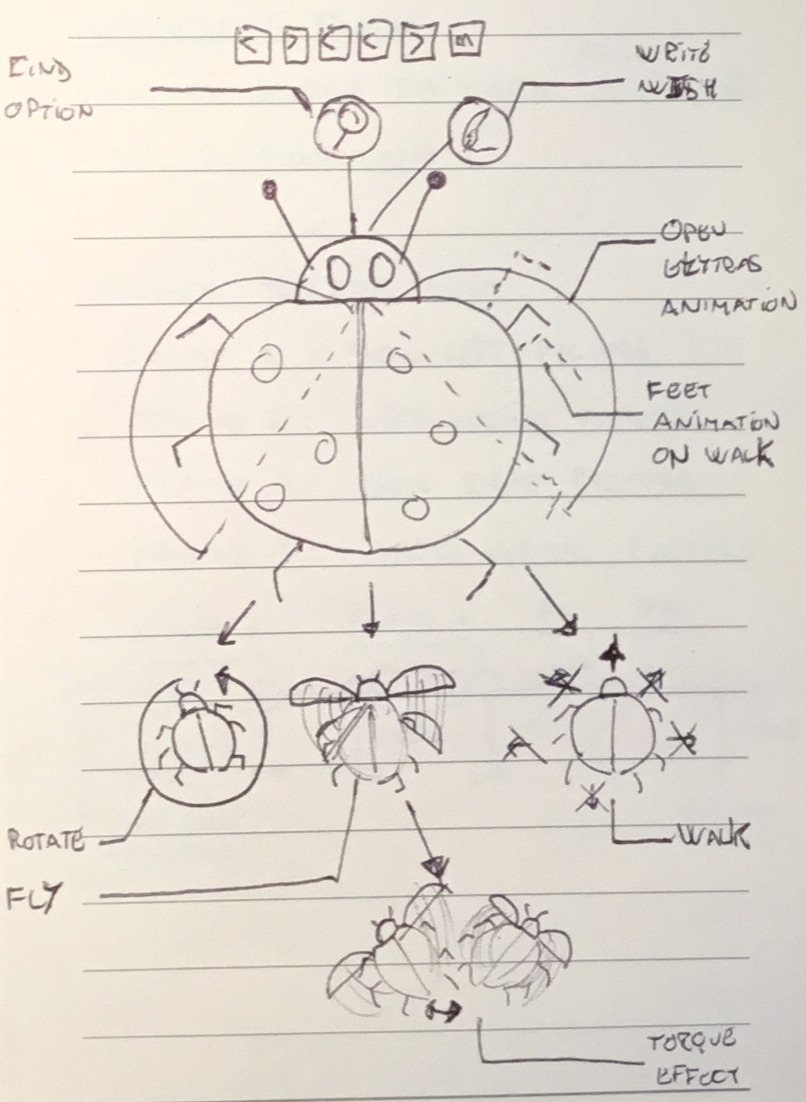 < > < < > m
FIND
OPTION
WRITE
WISH
OPEN
ELYTRAS
ANIMATION
FEET
ANIMATION
ON WALK
ROTATE
FLY
WALK
TORQUE
EFFECT